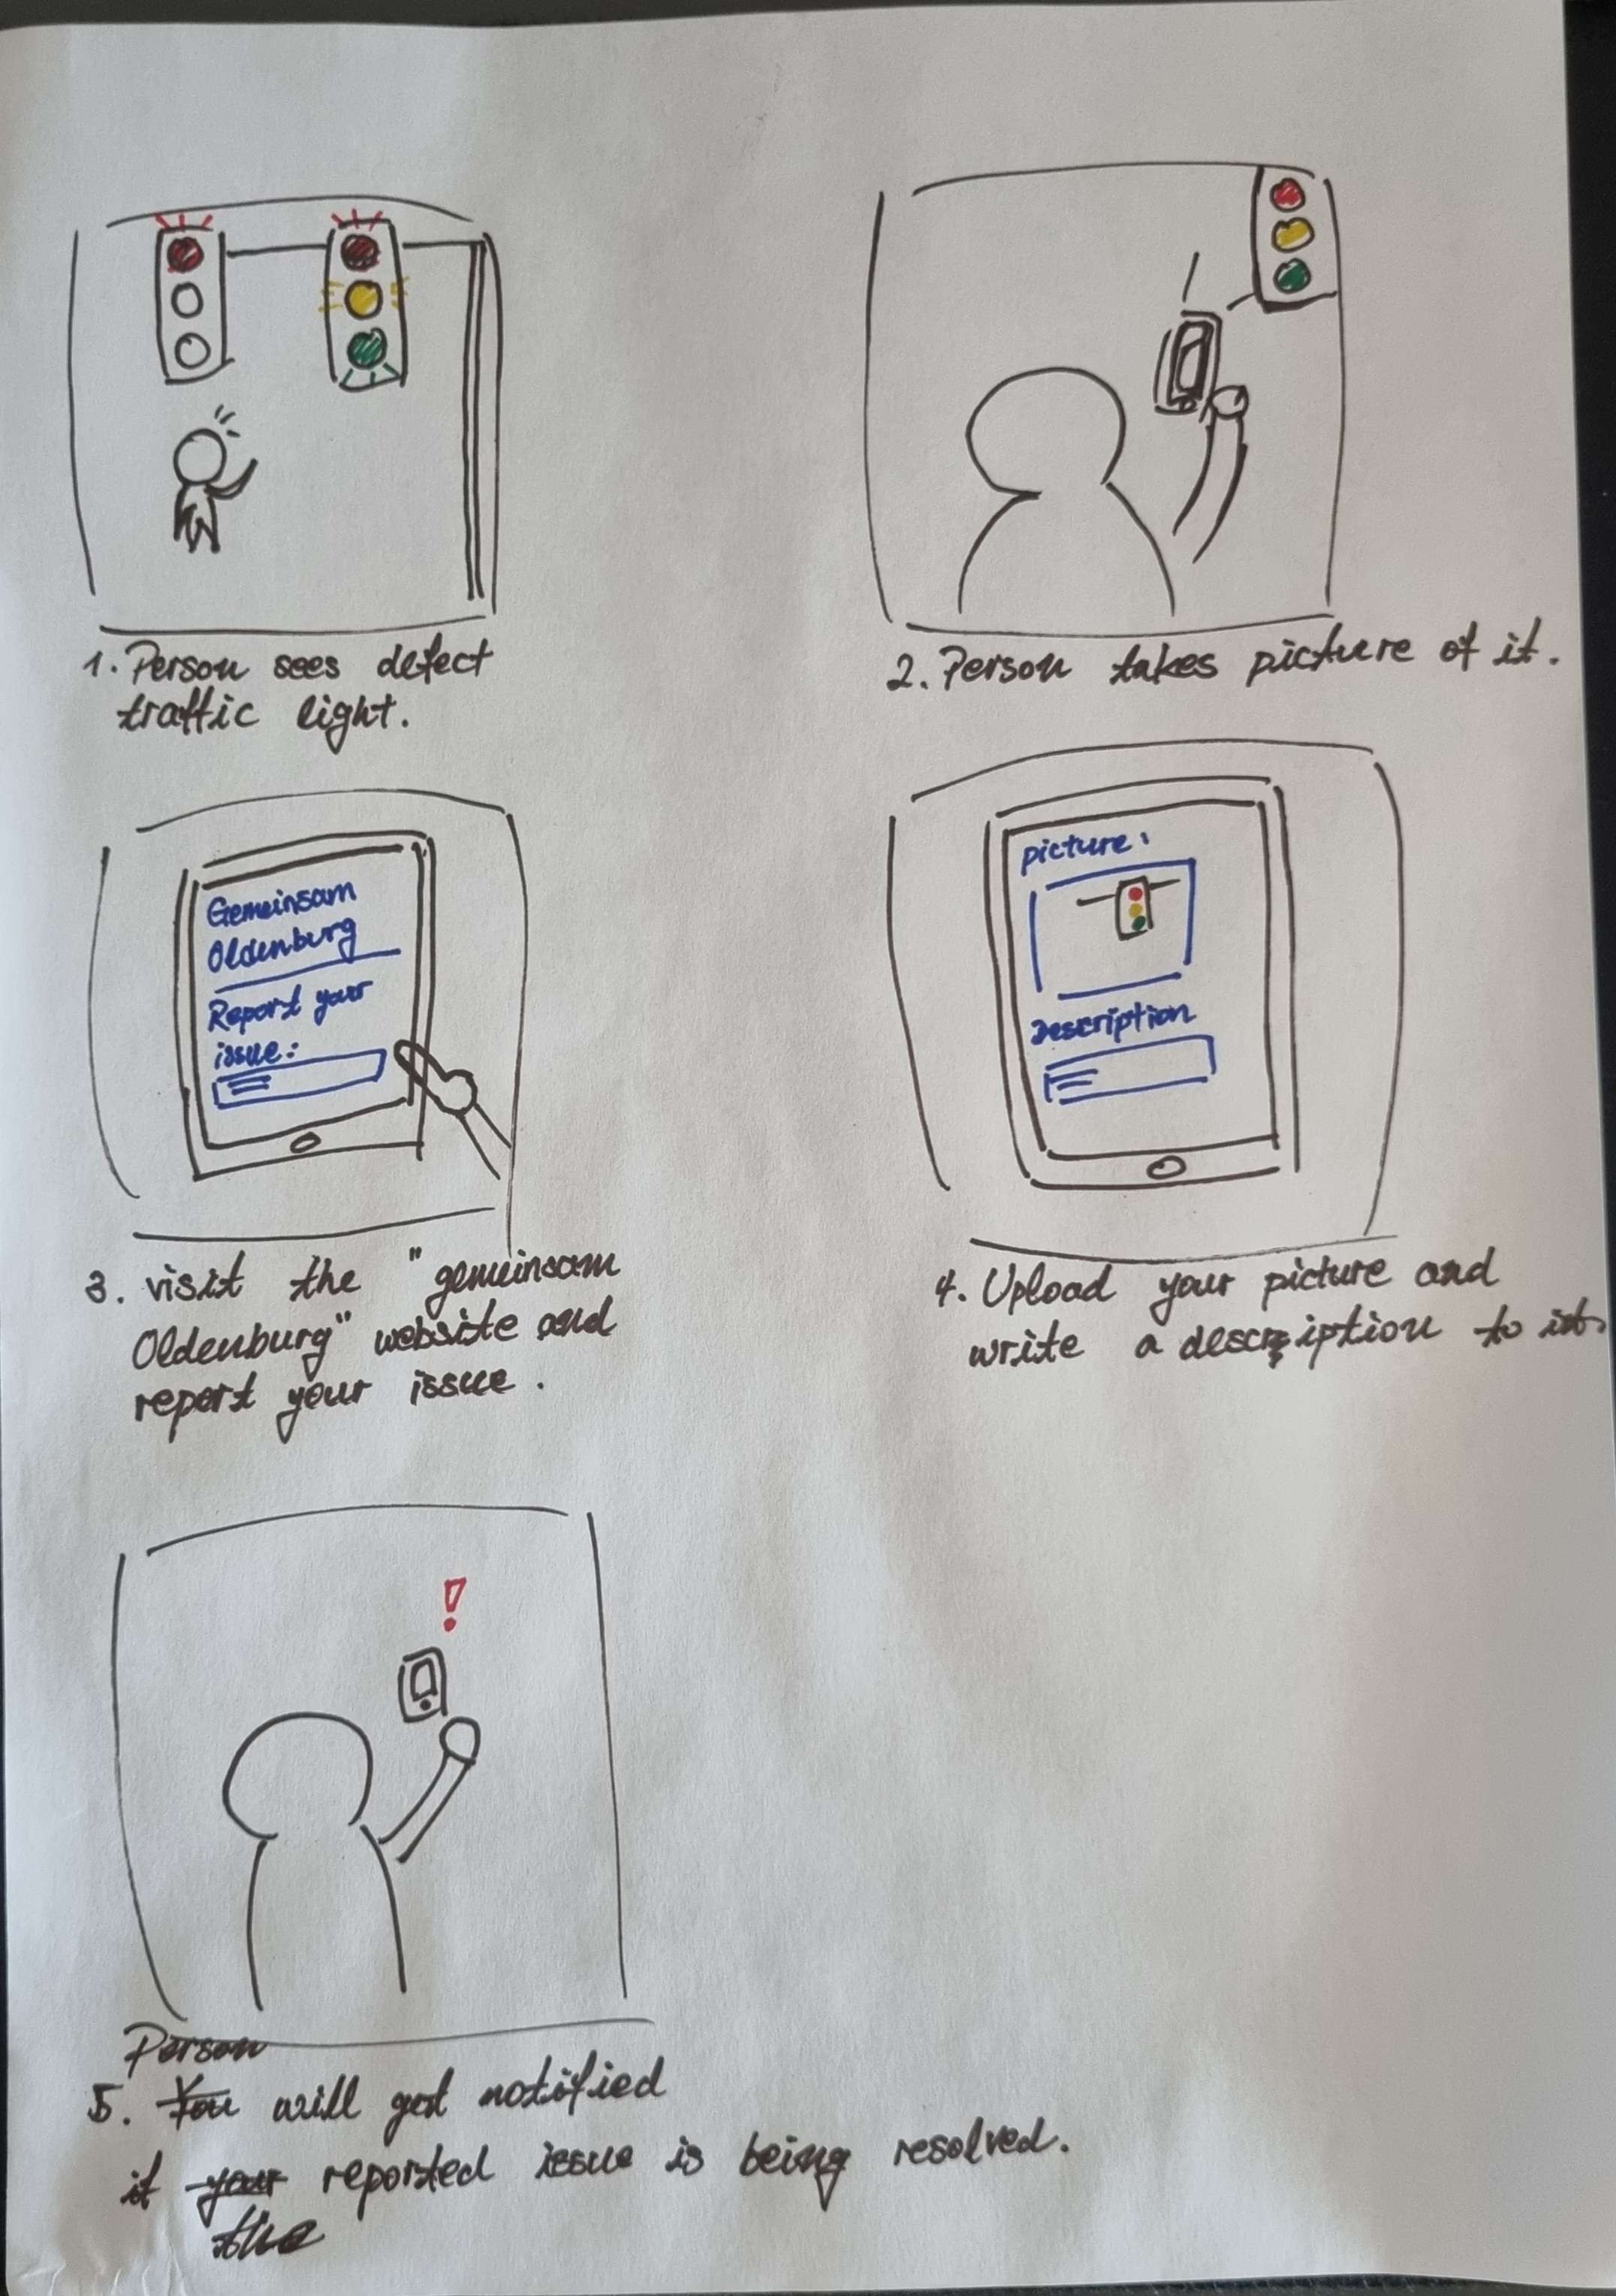 1. Person sees defect
traffic light.
2. Person takes picture of it.
Gemeinsam
Oldenburg
Report your
issue:
3. visit the "gemeinsam
Oldenburg" website and
report your issue.
picture:
Description
4. Upload your picture and
write a description to it.
Person
5. You will get notified
if your reported issue is being resolved.
the